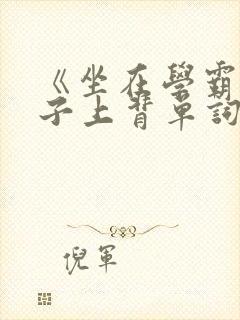 《坐在學霸
子上背單詞
倪軍